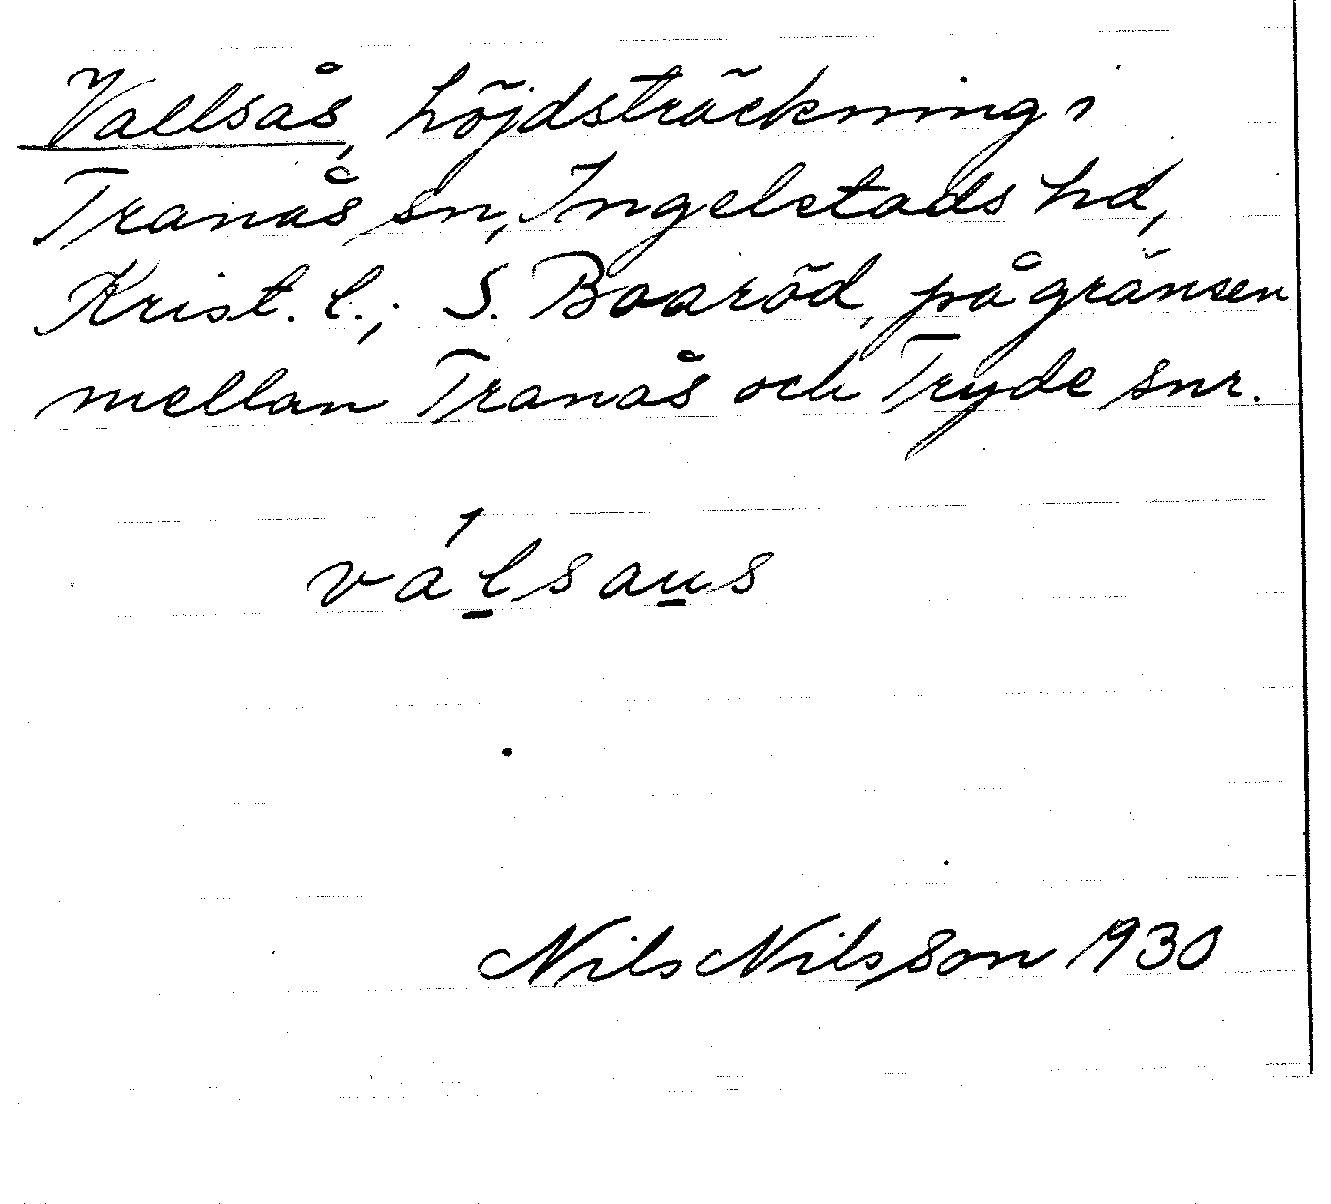 Vallsås, höjdsträckning i
Tranås sn, Ingelstads hd,
Krist. l.; S. Boaröd, på gränsen
mellan Tranås och Tryde snr.
válsaus
Nils Nilsson 1930